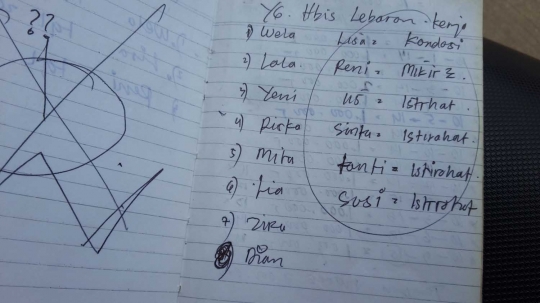 ??
YG. Hbis Lebaran. kerja
1) Wela Lisa = Kondosi
2) Lala. Reni = Mikir2.
3) Yeni = Istrhat.
4) Riska Sinta = Istirahat.
5) Mita tanti = Istirahat.
6) Lia Susi = Istirahat
7)
8) Dian